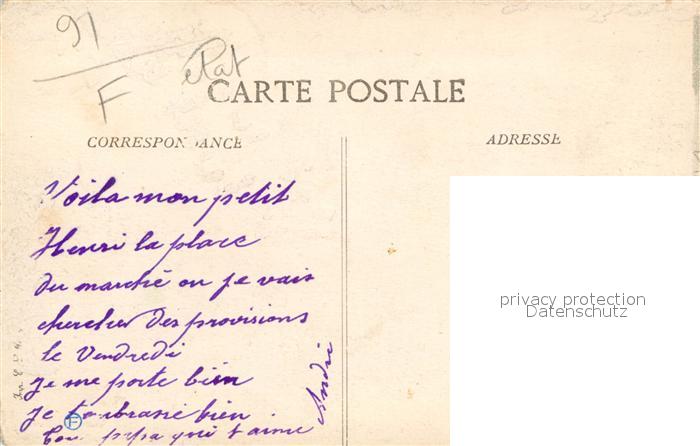 91
F
etat
CARTE POSTALE
CORRESPONDANCE
ADRESSE
Voila mon petit
Henri la place
du marché ou je vais
chercher des provisions
le Vendredi
Je me porte bien
Je t'embrasse bien
Ton papa qui t'aime
André
privacy protection
Datenschutz
F